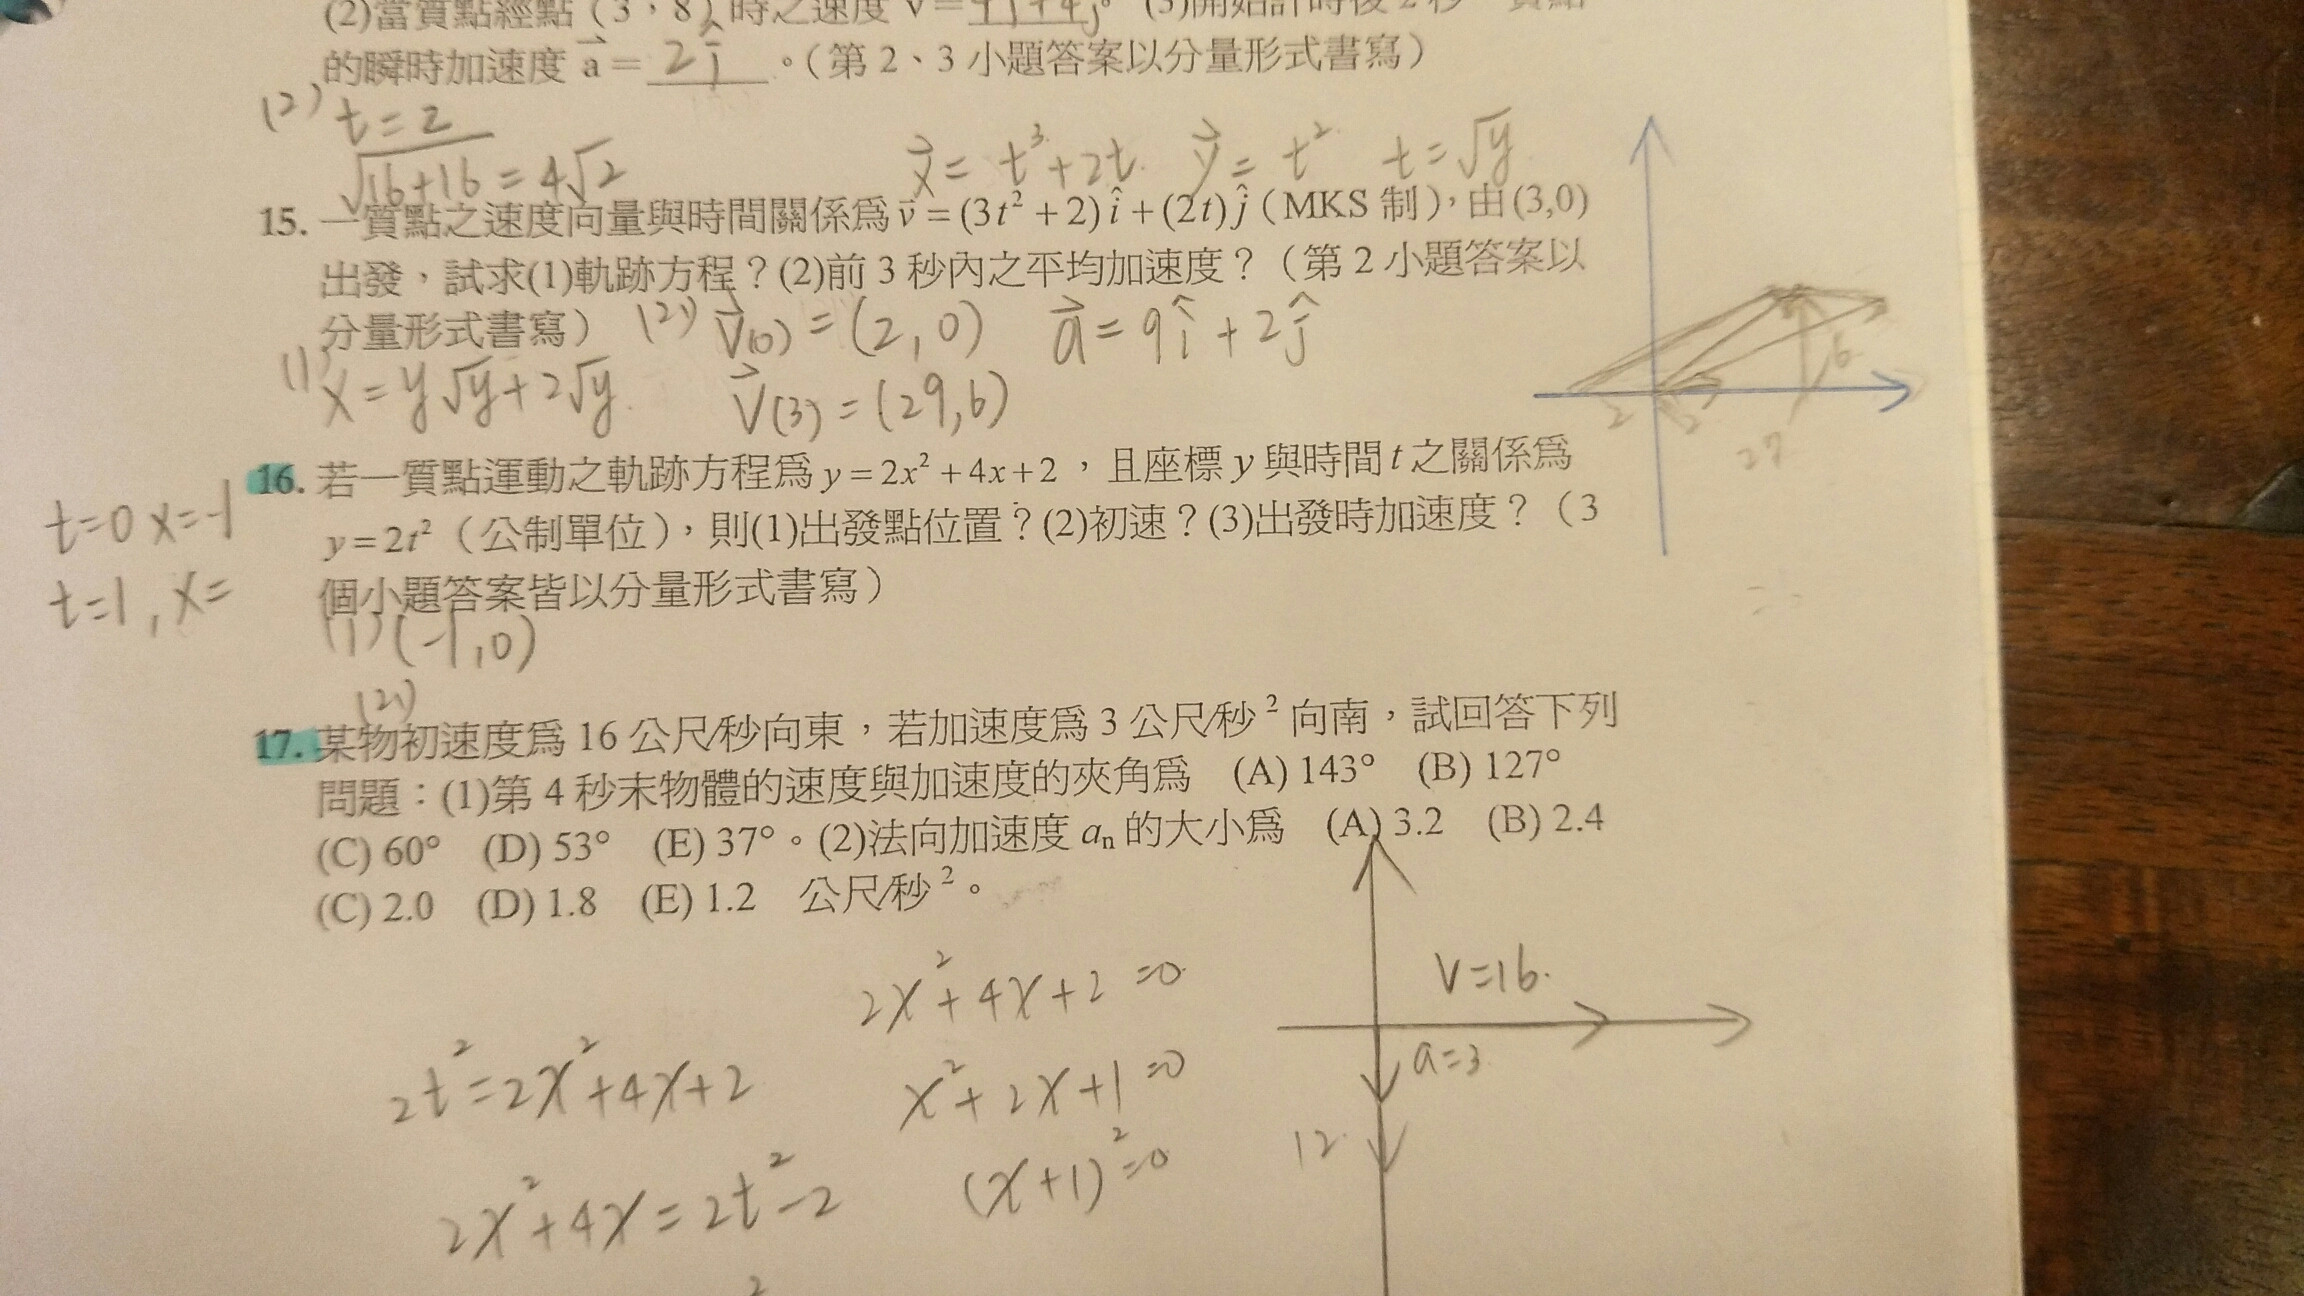 (2)當質點經點（3，8）時之速度 v＝4i+4j。(3)開始計時後2秒，質點
的瞬時加速度 a＝ 2ĵ 。（第 2、3 小題答案以分量形式書寫）
(2) t=2
√16+16 = 4√2
x⃗ = t³+2t. y⃗ = t² t=√y
15. 一質點之速度向量與時間關係為 v⃗ = (3t² + 2) î + (2t) ĵ（MKS 制），由(3,0)
出發，試求(1)軌跡方程？(2)前 3 秒內之平均加速度？（第 2 小題答案以
分量形式書寫）
(2) V⃗(0) = (2, 0) a⃗ = 9î + 2ĵ
(1) x = y√y + 2√y.
V⃗(3) = (29, 6)
2 2 27 6
16. 若一質點運動之軌跡方程為 y = 2x² + 4x + 2，且座標 y 與時間 t 之關係為
y = 2t²（公制單位），則(1)出發點位置？(2)初速？(3)出發時加速度？（3
個小題答案皆以分量形式書寫）
t=0 x=-1
t=1, x=
(1) (-1, 0)
(2)
17. 某物初速度為 16 公尺/秒向東，若加速度為 3 公尺/秒² 向南，試回答下列
問題：(1)第 4 秒末物體的速度與加速度的夾角為 (A) 143° (B) 127°
(C) 60° (D) 53° (E) 37°。(2)法向加速度 aₙ 的大小為 (A) 3.2 (B) 2.4
(C) 2.0 (D) 1.8 (E) 1.2 公尺/秒²。
2x²+4x+2 =0
2t²=2x²+4x+2
x²+2x+1=0
2x²+4x=2t²-2
(x+1)²=0
V=16.
a=3
12